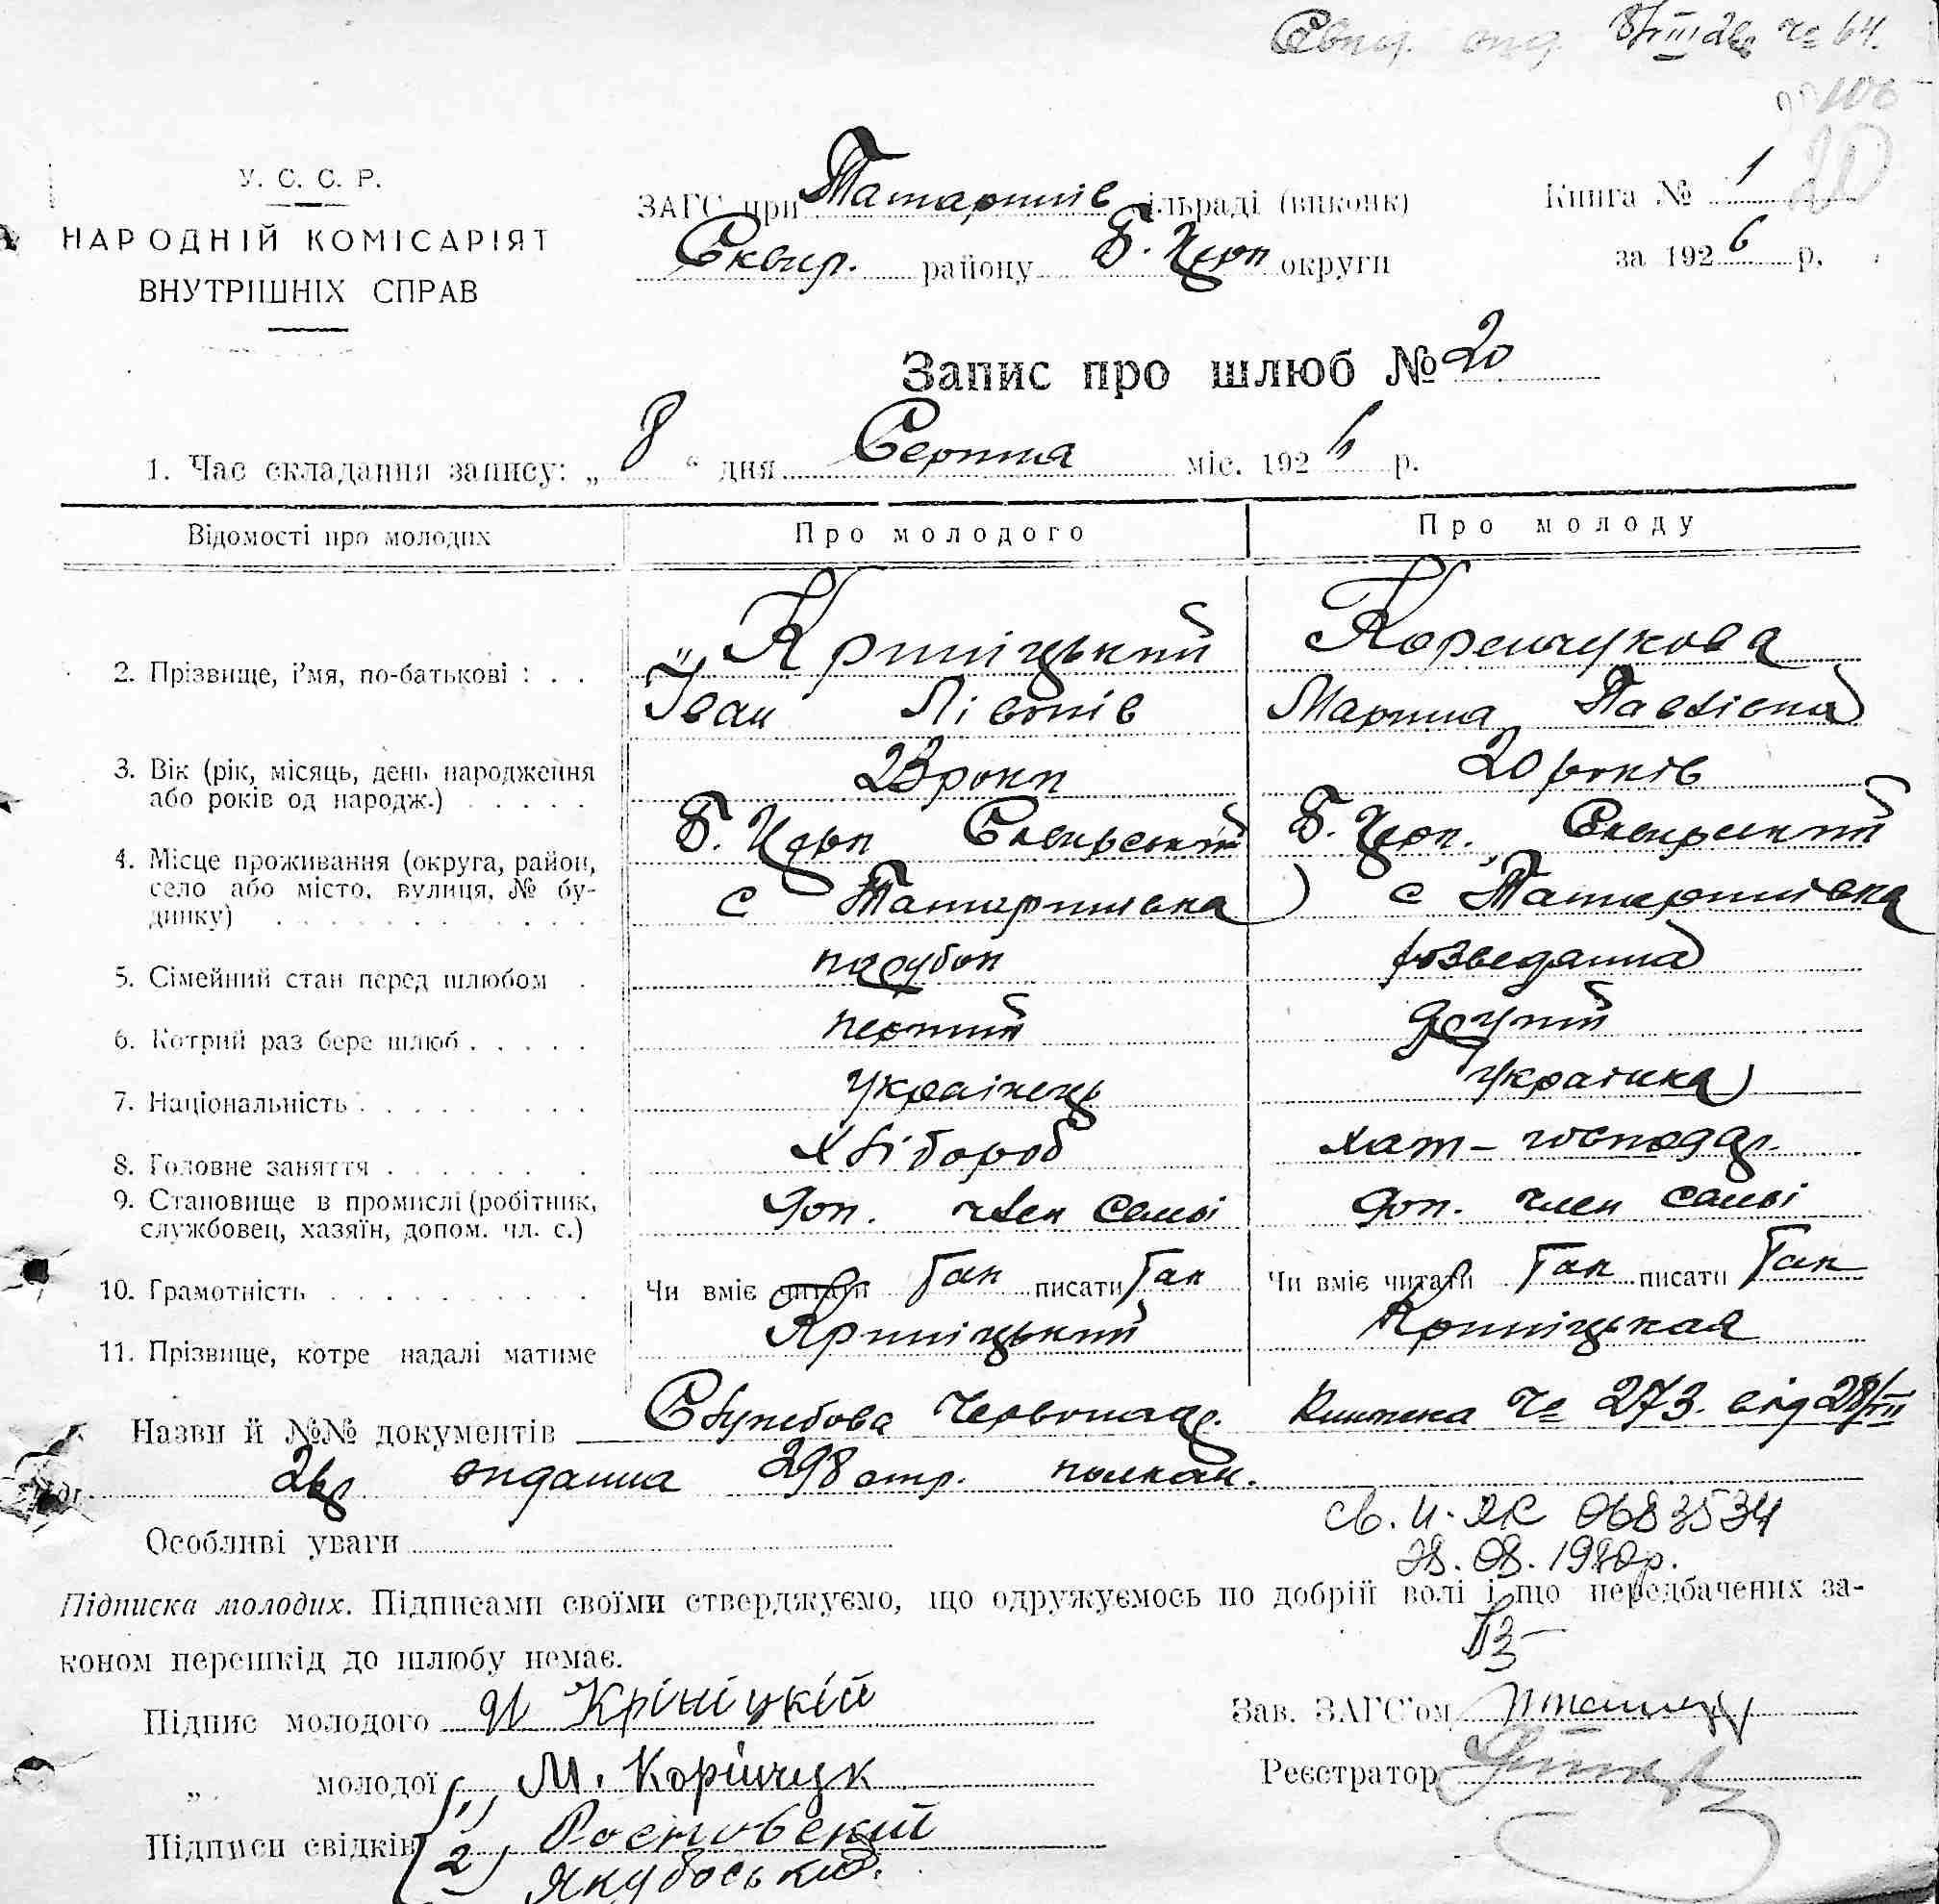 Свид. вид. 8/VIII 26р № 64.
106
20
У. С. С. Р.
НАРОДНІЙ КОМІСАРІЯТ
ВНУТРІШНІХ СПРАВ
ЗАГС при Татаринів ільраді (виконк)
Сквир. району Б. Церк округи
Книга № 1
за 1926 р.
Запис про шлюб № 20
1. Час складання запису: „ 8 “ дня Серпня міс. 1926 р.
Відомості про молодих Про молодого Про молоду
2. Прізвище, і’мя, по-батькові : . . Криніцький Коренчукова
Іван Лівонів Марина Павлівна
3. Вік (рік, місяць, день народження
або років од народж.) . . . . . 23 роки 20 років
4. Місце проживання (округа, район,
село або місто, вулиця, № бу-
динку) . . . . . . . . . . . .
Б. Церк Сквирський Б. Церк. Сквирський
с Татаринівка с Татаринівка
5. Сімейний стан перед шлюбом . парубок розведанна
6. Котрий раз бере шлюб . . . . . перший другий
7. Національність . . . . . . . . українець українка
8. Головне заняття . . . . . . . хлібороб хат - господар.
9. Становище в промислі (робітник,
службовец, хазяїн, допом. чл. с.) доп. член семьі доп. член семьі
10. Грамотність . . . . . . . . . . Чи вміє читати Так писати Так Чи вміє читати Так писати Так
11. Прізвище, котре надалі матиме Криніцький Криніцькая
Назви й №№ документів Службова Червоноар. Книжка № 273. від 28/VII
26р видання 298 стр. полкан.
Особливі уваги
св. И-ЯК 0683534
28. 08. 1980р.
Підписка молодих. Підписами своїми стверджуємо, що одружуємось по добрій волі і що передбачених за-
коном перешкід до шлюбу немає.
Підпис молодого И Крініцкій
Зав. ЗАГС’ом
„ молодої М. Корінчук
Реєстратор
Підписи свідків 1) Ростовский
2) Якубоський.